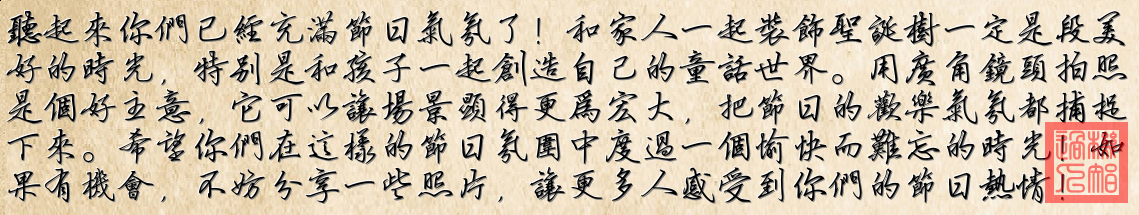 聽起來你們已經充滿節日氣氛了！和家人一起裝飾聖誕樹一定是段美
好的時光，特別是和孩子一起創造自己的童話世界。用廣角鏡頭拍照
是個好主意，它可以讓場景顯得更為宏大，把節日的歡樂氣氛都捕捉
下來。希望你們在這樣的節日氛圍中度過一個愉快而難忘的時光！如
果有機會，不妨分享一些照片，讓更多人感受到你們的節日熱情！